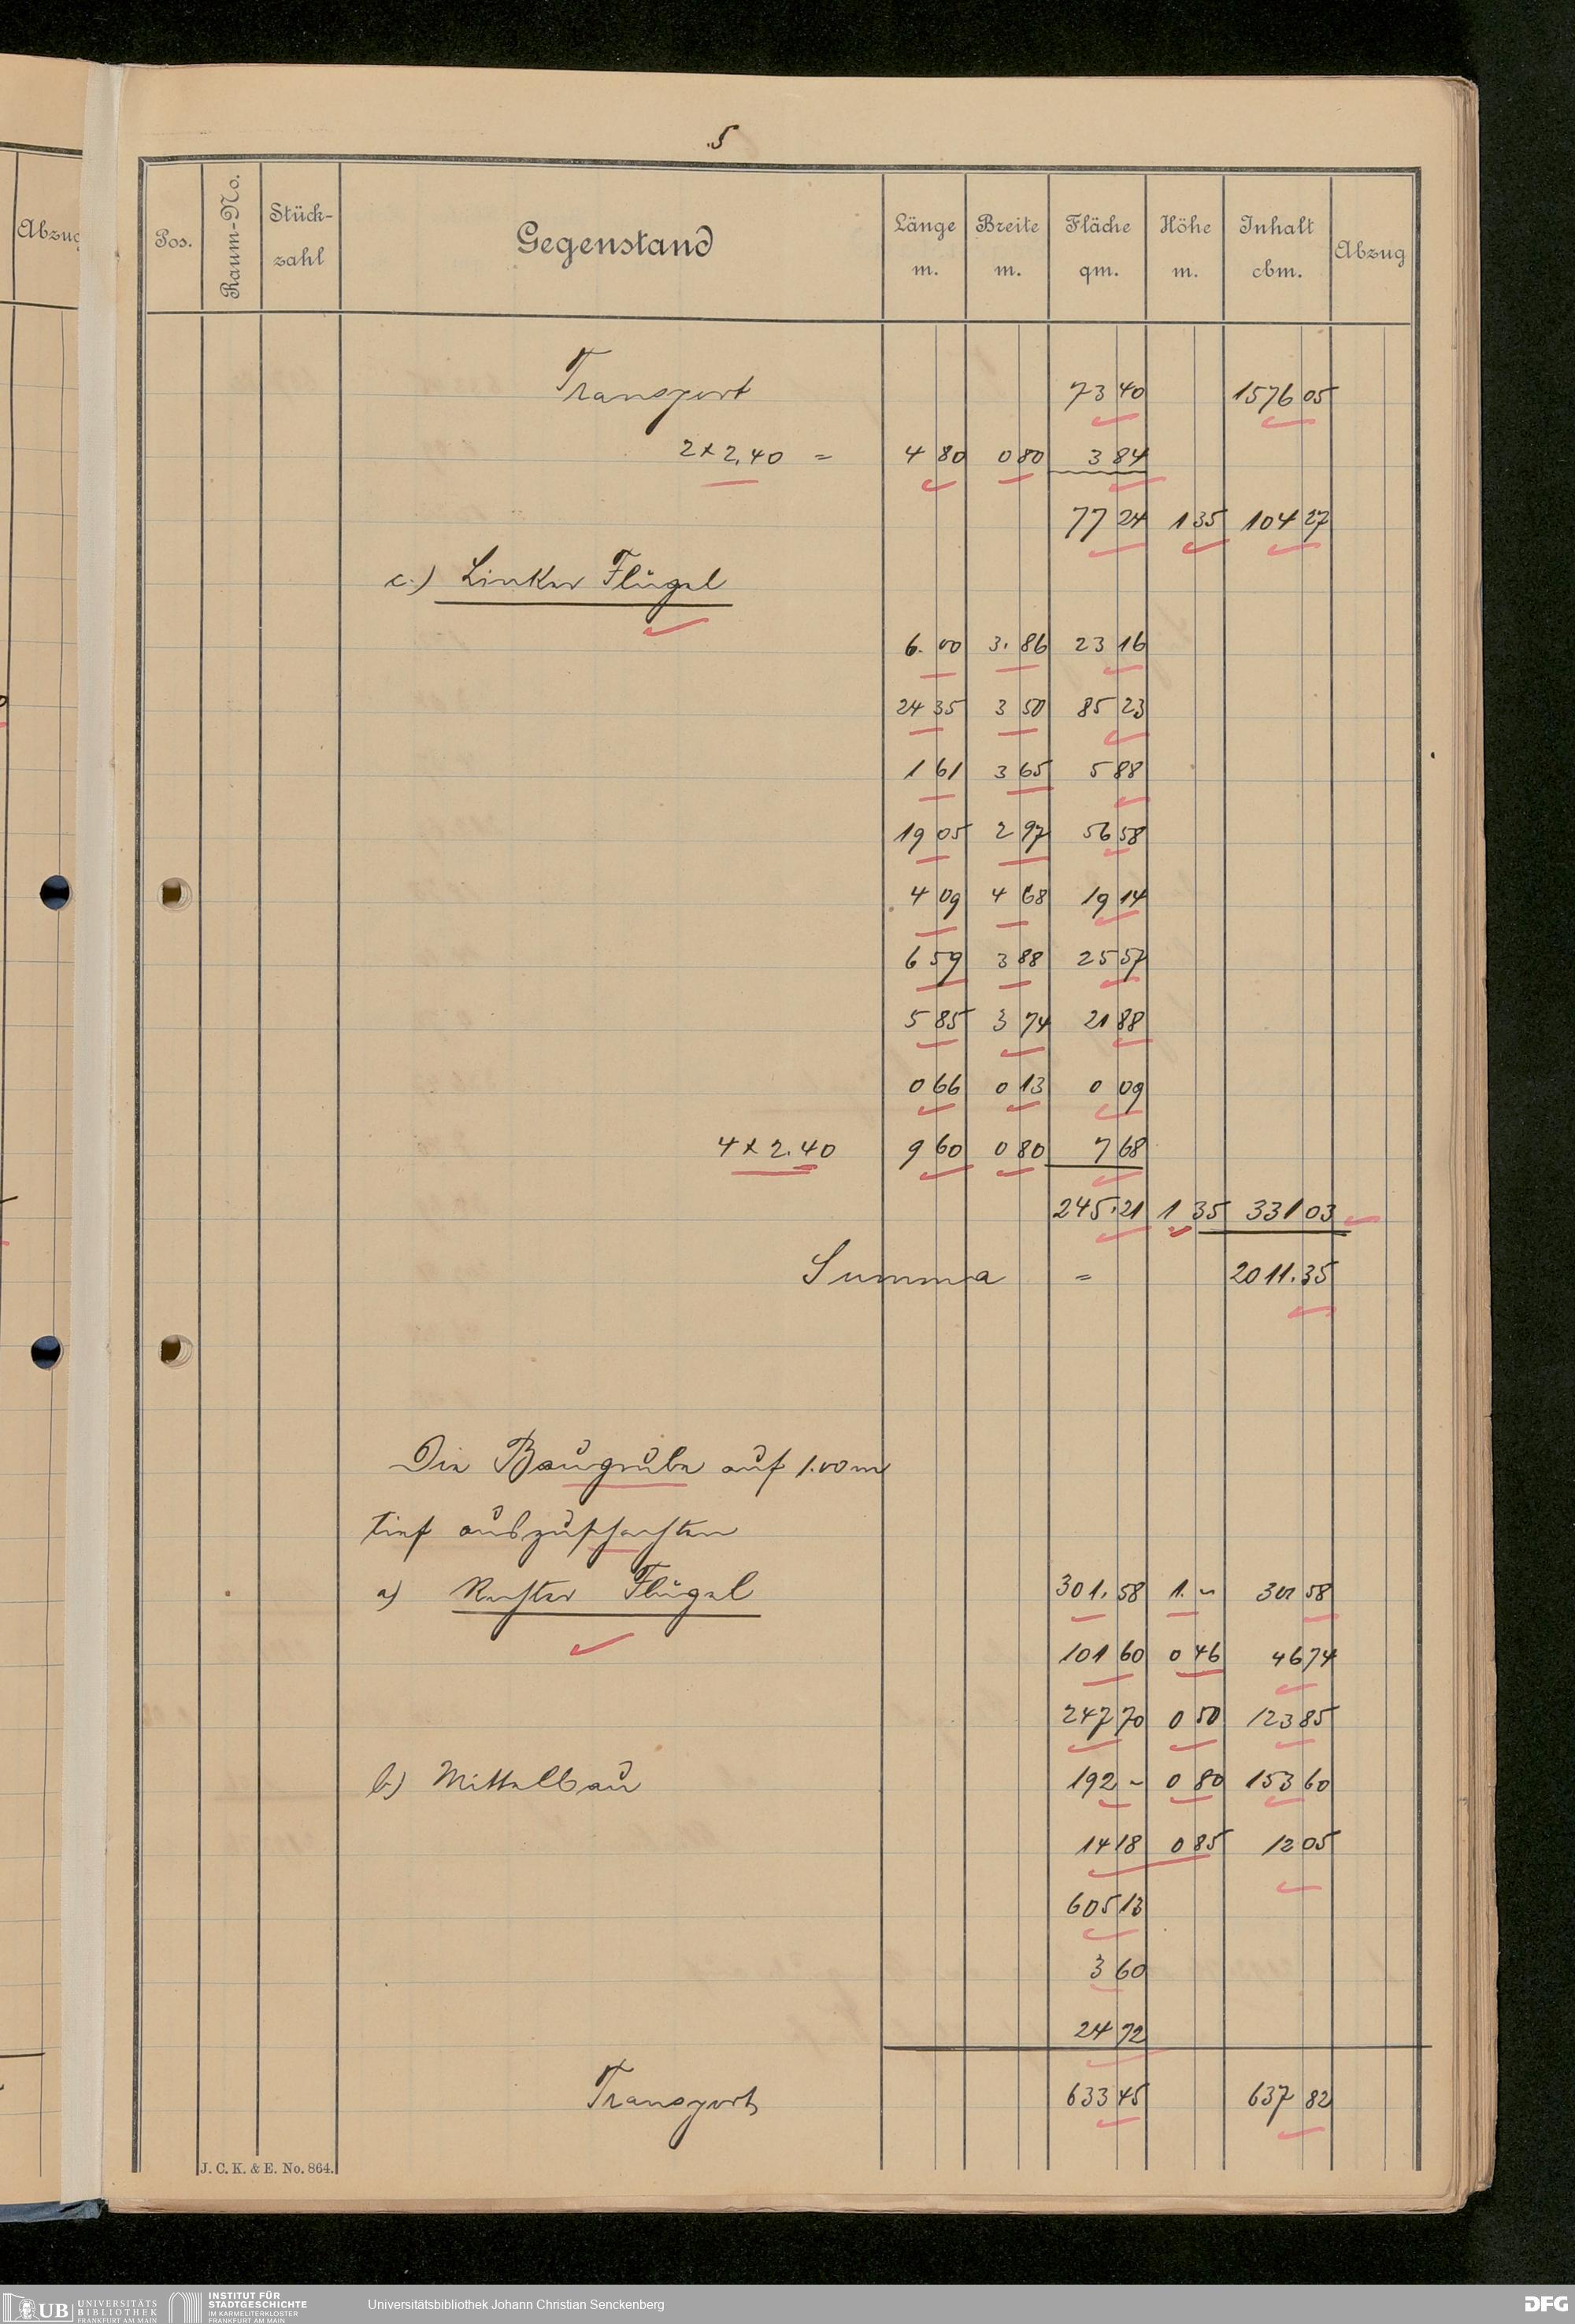 5
Abzug
Pos. Raum-No. Stück-zahl Gegenstand Länge m. Breite m. Fläche qm. Höhe m. Inhalt cbm. Abzug
Transport 73 40 1576 05
2 x 2.40 = 4 80 0 80 3 84
77 24 1 35 104 27
c.) Linker Flügel
6. 00 3. 86 23 16
24 35 3 50 85 23
1 61 3 65 5 88
19 05 2 97 56 58
4 09 4 68 19 14
6 59 3 88 25 57
5 85 3 74 21 88
0 66 0 13 0 09
4 x 2.40 9 60 0 80 7 68
245.21 1 35 331 03
Summa = 2011.35
Die Baugrube auf 1.00 m
tief auszuschachten
a) Rechter Flügel 301. 58 1. - 301 58
101 60 0 46 46 74
247 70 0 50 123 85
b) Mittelbau 192 - 0 80 153 60
14 18 0 85 12 05
605 13
3 60
24 72
Transport 633 45 637 82
J. C. K. & E. No. 864.
UB UNIVERSITÄTS BIBLIOTHEK FRANKFURT AM MAIN
INSTITUT FÜR STADTGESCHICHTE IM KARMELITERKLOSTER FRANKFURT AM MAIN
Universitätsbibliothek Johann Christian Senckenberg
DFG